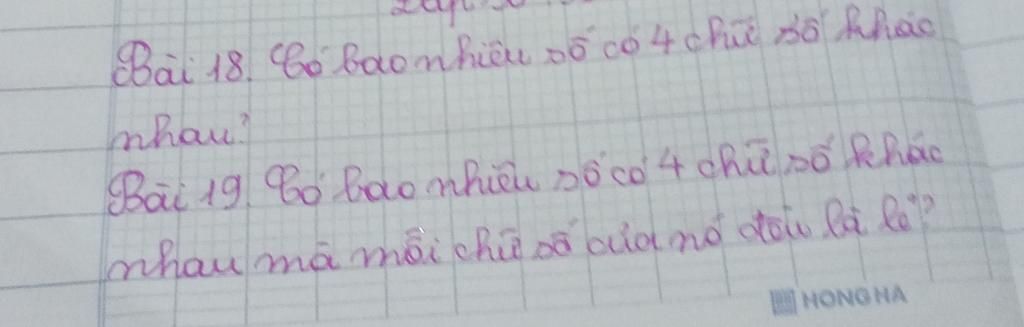 Bài 18. Có bao nhiêu số có 4 chữ số khác
nhau?
Bài 19. Có bao nhiêu số có 4 chữ số khác
nhau mà mỗi chữ số của nó đều là lẻ?
HONG HA